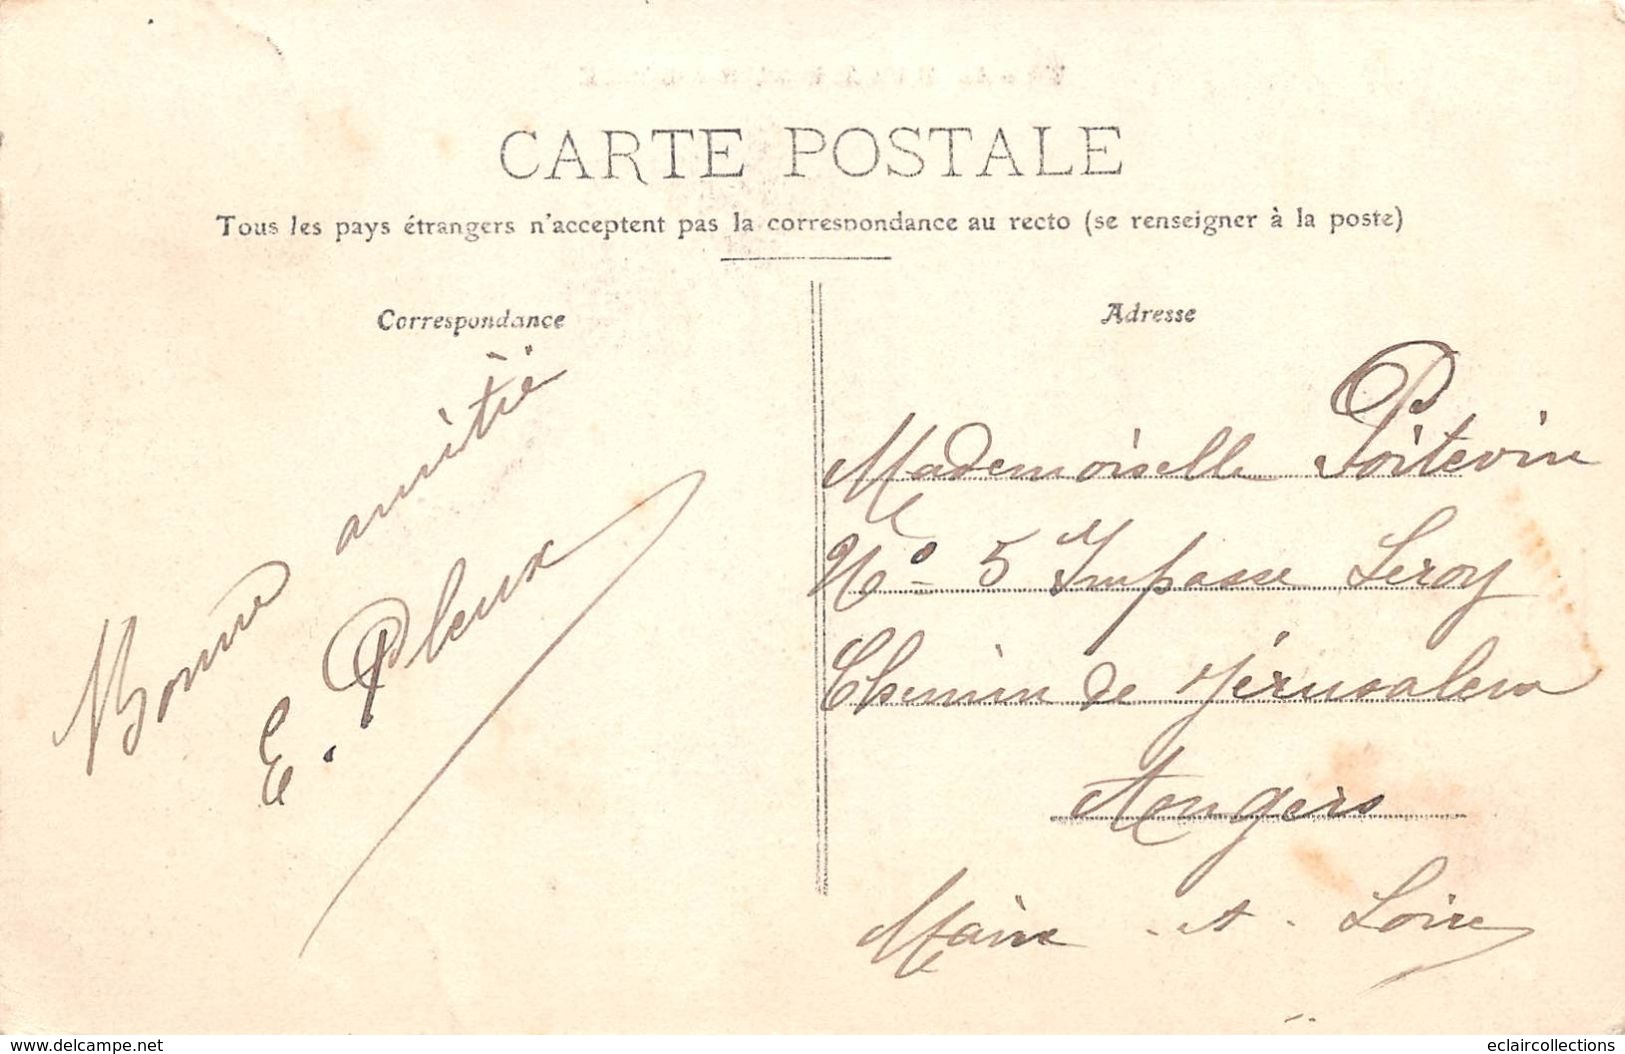 CARTE POSTALE
Tous les pays étrangers n'acceptent pas la correspondance au recto (se renseigner à la poste)
Correspondance
Bonne amitié
E. Pleux
Adresse
Mademoiselle Poitevin
No 5 Impasse Leroy
Chemin de Jérusalem
Angers
Maine - et - Loire
www.delcampe.net
eclaircollections